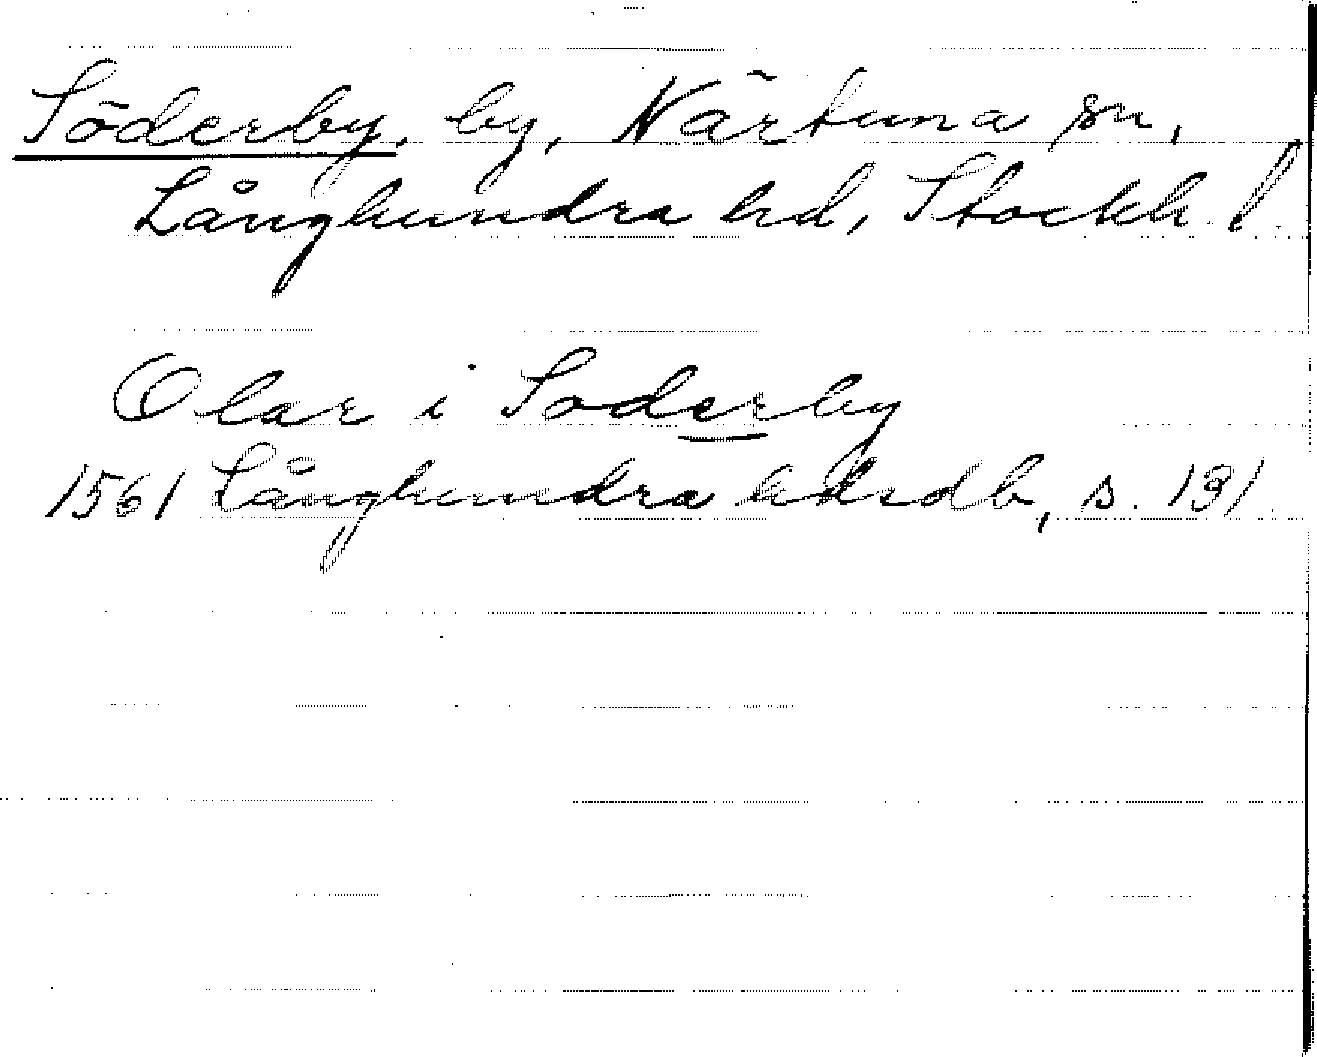 Söderby, by, Närtuna sn,
Långhundra hd, Stockh. l.
Olar i Soderby
1561 Långhundra hdrdb, s. 131